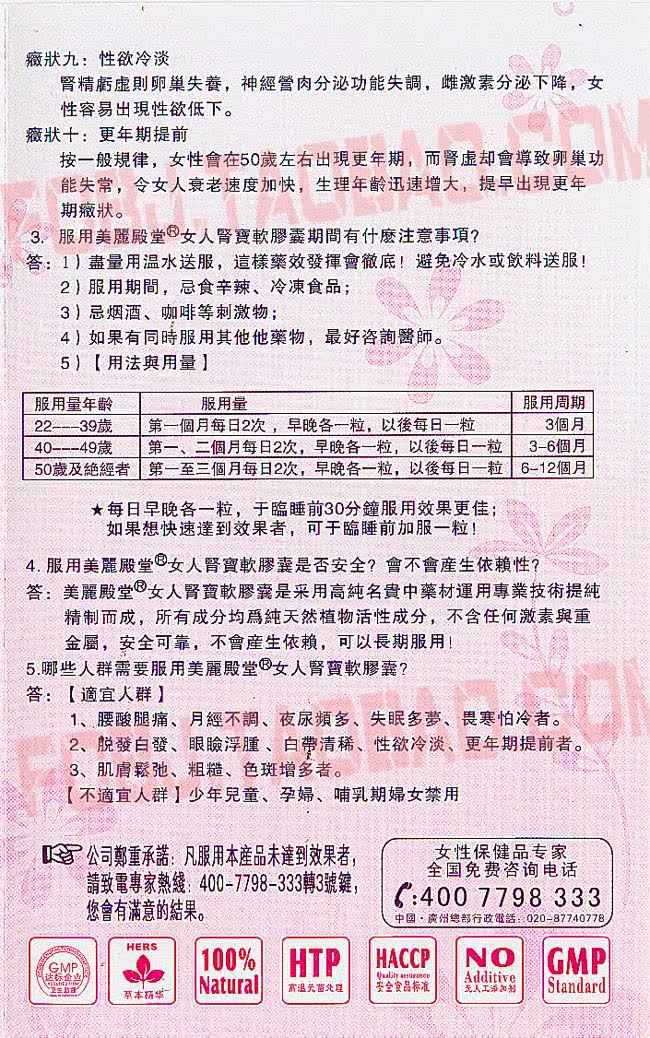 癥狀九：性欲冷淡
腎精虧虛則卵巢失養，神經營肉分泌功能失調，雌激素分泌下降，女
性容易出現性欲低下。
癥狀十：更年期提前
按一般規律，女性會在50歲左右出現更年期，而腎虛却會導致卵巢功
能失常，令女人衰老速度加快，生理年齡迅速增大，提早出現更年
期癥狀。
3. 服用美麗殿堂®女人腎寶軟膠囊期間有什麽注意事項?
答：1）盡量用温水送服，這樣藥效發揮會徹底！避免冷水或飲料送服！
2）服用期間，忌食辛辣、冷凍食品；
3）忌烟酒、咖啡等刺激物；
4）如果有同時服用其他他藥物，最好咨詢醫師。
5）【用法與用量】
服用量年齡 服用量 服用周期
22---39歲 第一個月每日2次，早晚各一粒，以後每日一粒 3個月
40---49歲 第一、二個月每日2次，早晚各一粒，以後每日一粒 3-6個月
50歲及絶經者 第一至三個月每日2次，早晚各一粒，以後每日一粒 6-12個月
★每日早晚各一粒，于臨睡前30分鐘服用效果更佳；
如果想快速達到效果者，可于臨睡前加服一粒！
4. 服用美麗殿堂®女人腎寶軟膠囊是否安全？會不會産生依賴性？
答：美麗殿堂®女人腎寶軟膠囊是采用高純名貴中藥材運用專業技術提純
精制而成，所有成分均爲純天然植物活性成分，不含任何激素與重
金屬，安全可靠，不會産生依賴，可以長期服用！
5.哪些人群需要服用美麗殿堂®女人腎寶軟膠囊?
答：【適宜人群】
1、腰酸腿痛、月經不調、夜尿頻多、失眠多夢、畏寒怕冷者。
2、脱發白發、眼瞼浮腫、白帶清稀、性欲冷淡、更年期提前者。
3、肌膚鬆弛、粗糙、色斑增多者。
【不適宜人群】少年兒童、孕婦、哺乳期婦女禁用
公司鄭重承諾：凡服用本産品未達到效果者，
請致電專家熱綫：400-7798-333轉3號鍵，
您會有滿意的結果。
女性保健品专家
全国免费咨询电话
:400 7798 333
中國·廣州總部行政電話：020-87740778
GMP
达标企业
HERS
草本精华
100%
Natural
HTP
高温无菌处理
HACCP
Quality assurance
安全食品标准
NO
Additive
无人工添加剂
GMP
Standard